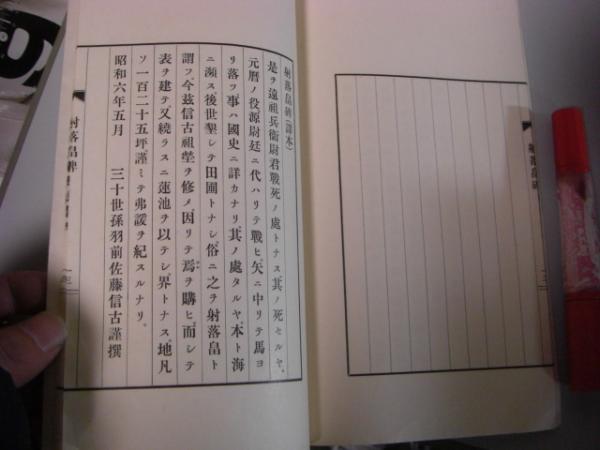 射落畠碑(譯本)
是ヲ遠祖兵衞尉君戰死ノ處トナス其ノ死セルヤ、
元曆ノ役源尉廷ニ代ハリテ戰ヒ矢ニ中リテ馬ヨ
リ落ツ事ハ國史ニ詳カナリ其ノ處タルヤ本ト海
ニ瀕ス後世墾シテ田圃トナシ俗ニ之ヲ射落畠ト
謂フ今茲信古祖塋ヲ修メ因リテ焉ヲ購ヒ而シテ
表ヲ建テ又繞ラスニ蓮池ヲ以テシ界トナス地凡
ソ一百二十五坪謹ミテ弗諼ヲ紀スルナリ。
昭和六年五月 三十世孫羽前佐藤信古謹撰
射落畠碑